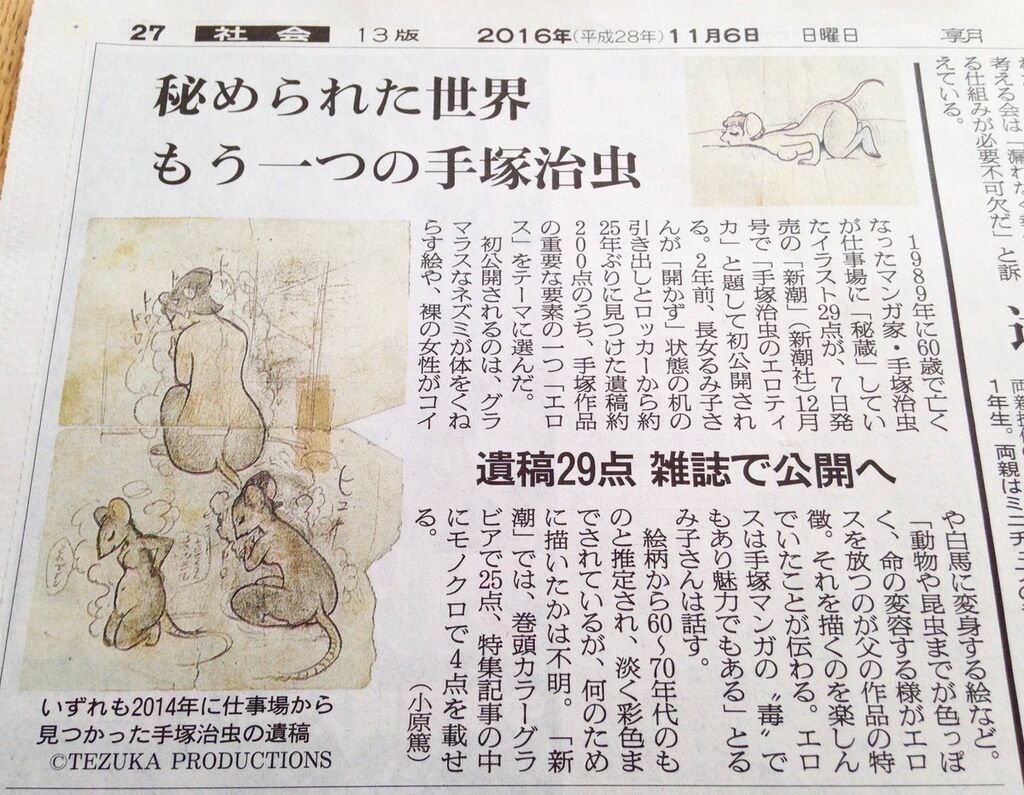 27 社会 13版 2016年(平成28年)11月6日 日曜日 朝
秘められた世界
もう一つの手塚治虫
1989年に60歳で亡く
なったマンガ家・手塚治虫
が仕事場に「秘蔵」してい
たイラスト29点が、7日発
売の「新潮」(新潮社)12月
号で「手塚治虫のエロティ
カ」と題して初公開され
る。2年前、長女るみ子さ
んが「開かず」状態の机の
引き出しとロッカーから約
25年ぶりに見つけた遺稿約
200点のうち、手塚作品
の重要な要素の一つ「エロ
ス」をテーマに選んだ。
初公開されるのは、グラ
マラスなネズミが体をくね
らす絵や、裸の女性がコイ
遺稿29点 雑誌で公開へ
や白馬に変身する絵など。
「動物や昆虫までが色っぽ
く、命の変容する様がエロ
スを放つのが父の作品の特
徴。それを描くのを楽しん
でいたことが伝わる。エロ
スは手塚マンガの〝毒〟で
もあり魅力でもある」とる
み子さんは話す。
絵柄から60~70年代のも
のと推定され、淡く彩色ま
でされているが、何のため
に描いたかは不明。「新
潮」では、巻頭カラーグラ
ビアで25点、特集記事の中
にモノクロで4点を載せ
る。
(小原篤)
いずれも2014年に仕事場から
見つかった手塚治虫の遺稿
©TEZUKA PRODUCTIONS
考える会は「漏れなく
る仕組みが必要不可欠だ」と訴
えている。
1年生。両親はミニチ